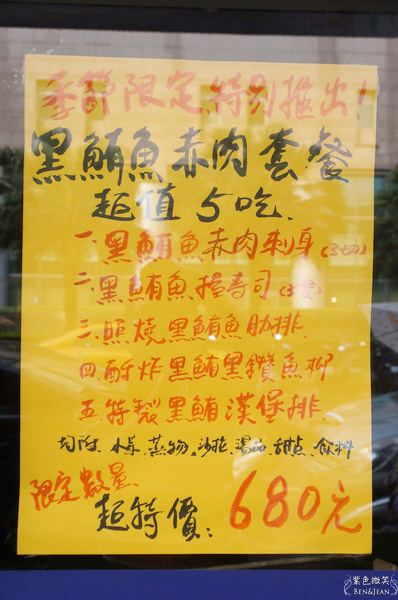 季節限定、特別推出!
黑鮪魚赤肉套餐
超值5吃.
一.黑鮪魚赤肉刺身(3切)
二.黑鮪魚握壽司(3貫)
三.照燒黑鮪魚肋排.
四.酥炸黑鮪黑鑽魚柳
五.特製黑鮪漢堡排.
均附、小菜、蒸物、沙拉、湯品、甜點、飲料
限定數量
超特價:680元
紫色微笑
BEN&JEAN